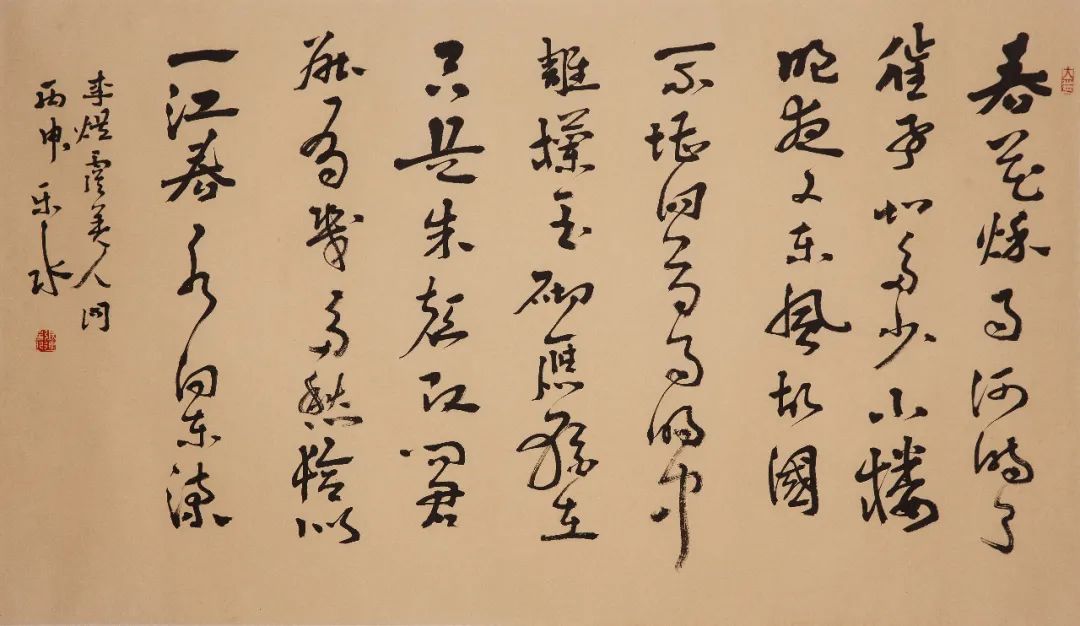 春花秋月何時了
往事知多少小樓
昨夜又東風故國
不堪回首月明中
雕欄玉砌應猶在
只是朱顏改問君
能有幾多愁恰似
一江春水向東流
李煜虞美人詞
丙申 乐水